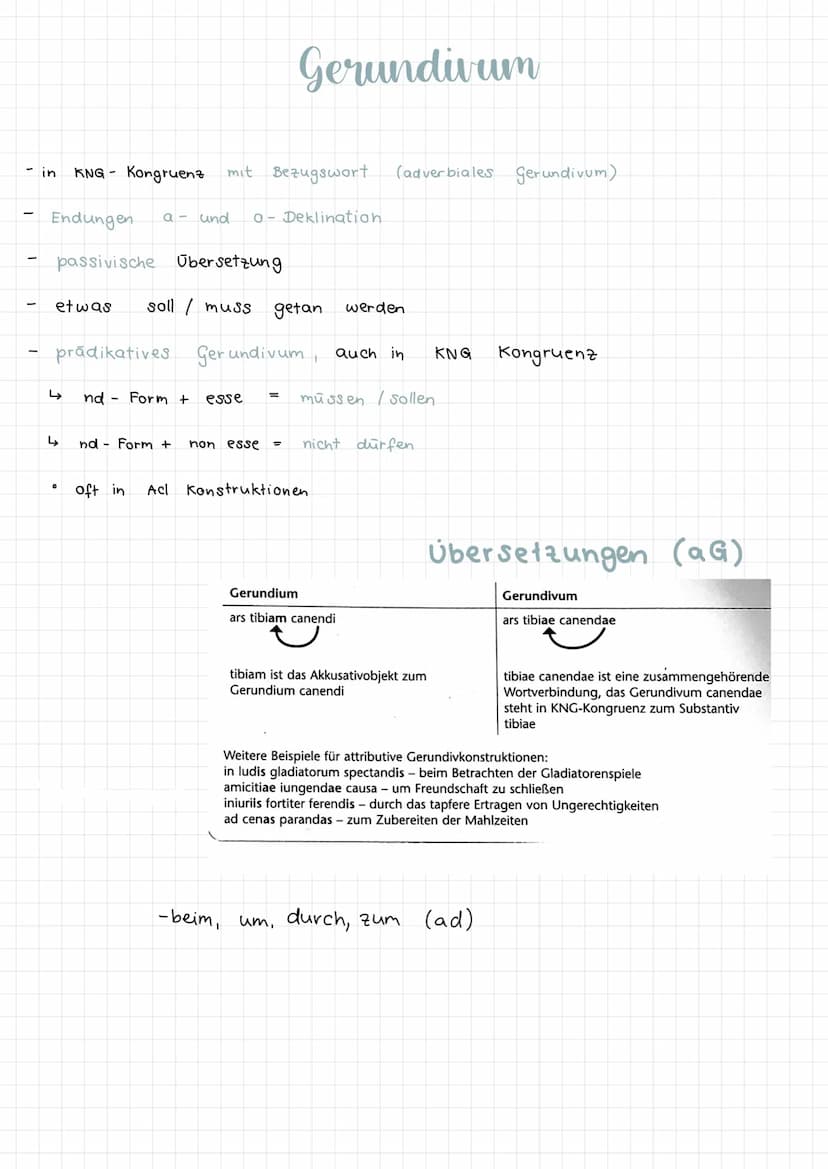 Gerundivum
- in KNG - Kongruenz mit Bezugswort (adverbiales Gerundivum)
- Endungen a- und o-Deklination
- passivische Übersetzung
- etwas soll / muss getan werden
- prädikatives Gerundivum, auch in KNG Kongruenz
↳ nd - Form + esse = müssen / sollen
↳ nd - Form + non esse = nicht dürfen
• oft in AcI Konstruktionen
Übersetzungen (aG)
Gerundium
ars tibiam canendi
tibiam ist das Akkusativobjekt zum
Gerundium canendi
Gerundivum
ars tibiae canendae
tibiae canendae ist eine zusammengehörende
Wortverbindung, das Gerundivum canendae
steht in KNG-Kongruenz zum Substantiv
tibiae
Weitere Beispiele für attributive Gerundivkonstruktionen:
in ludis gladiatorum spectandis – beim Betrachten der Gladiatorenspiele
amicitiae iungendae causa – um Freundschaft zu schließen
iniuriis fortiter ferendis – durch das tapfere Ertragen von Ungerechtigkeiten
ad cenas parandas – zum Zubereiten der Mahlzeiten
-beim, um, durch, zum (ad)